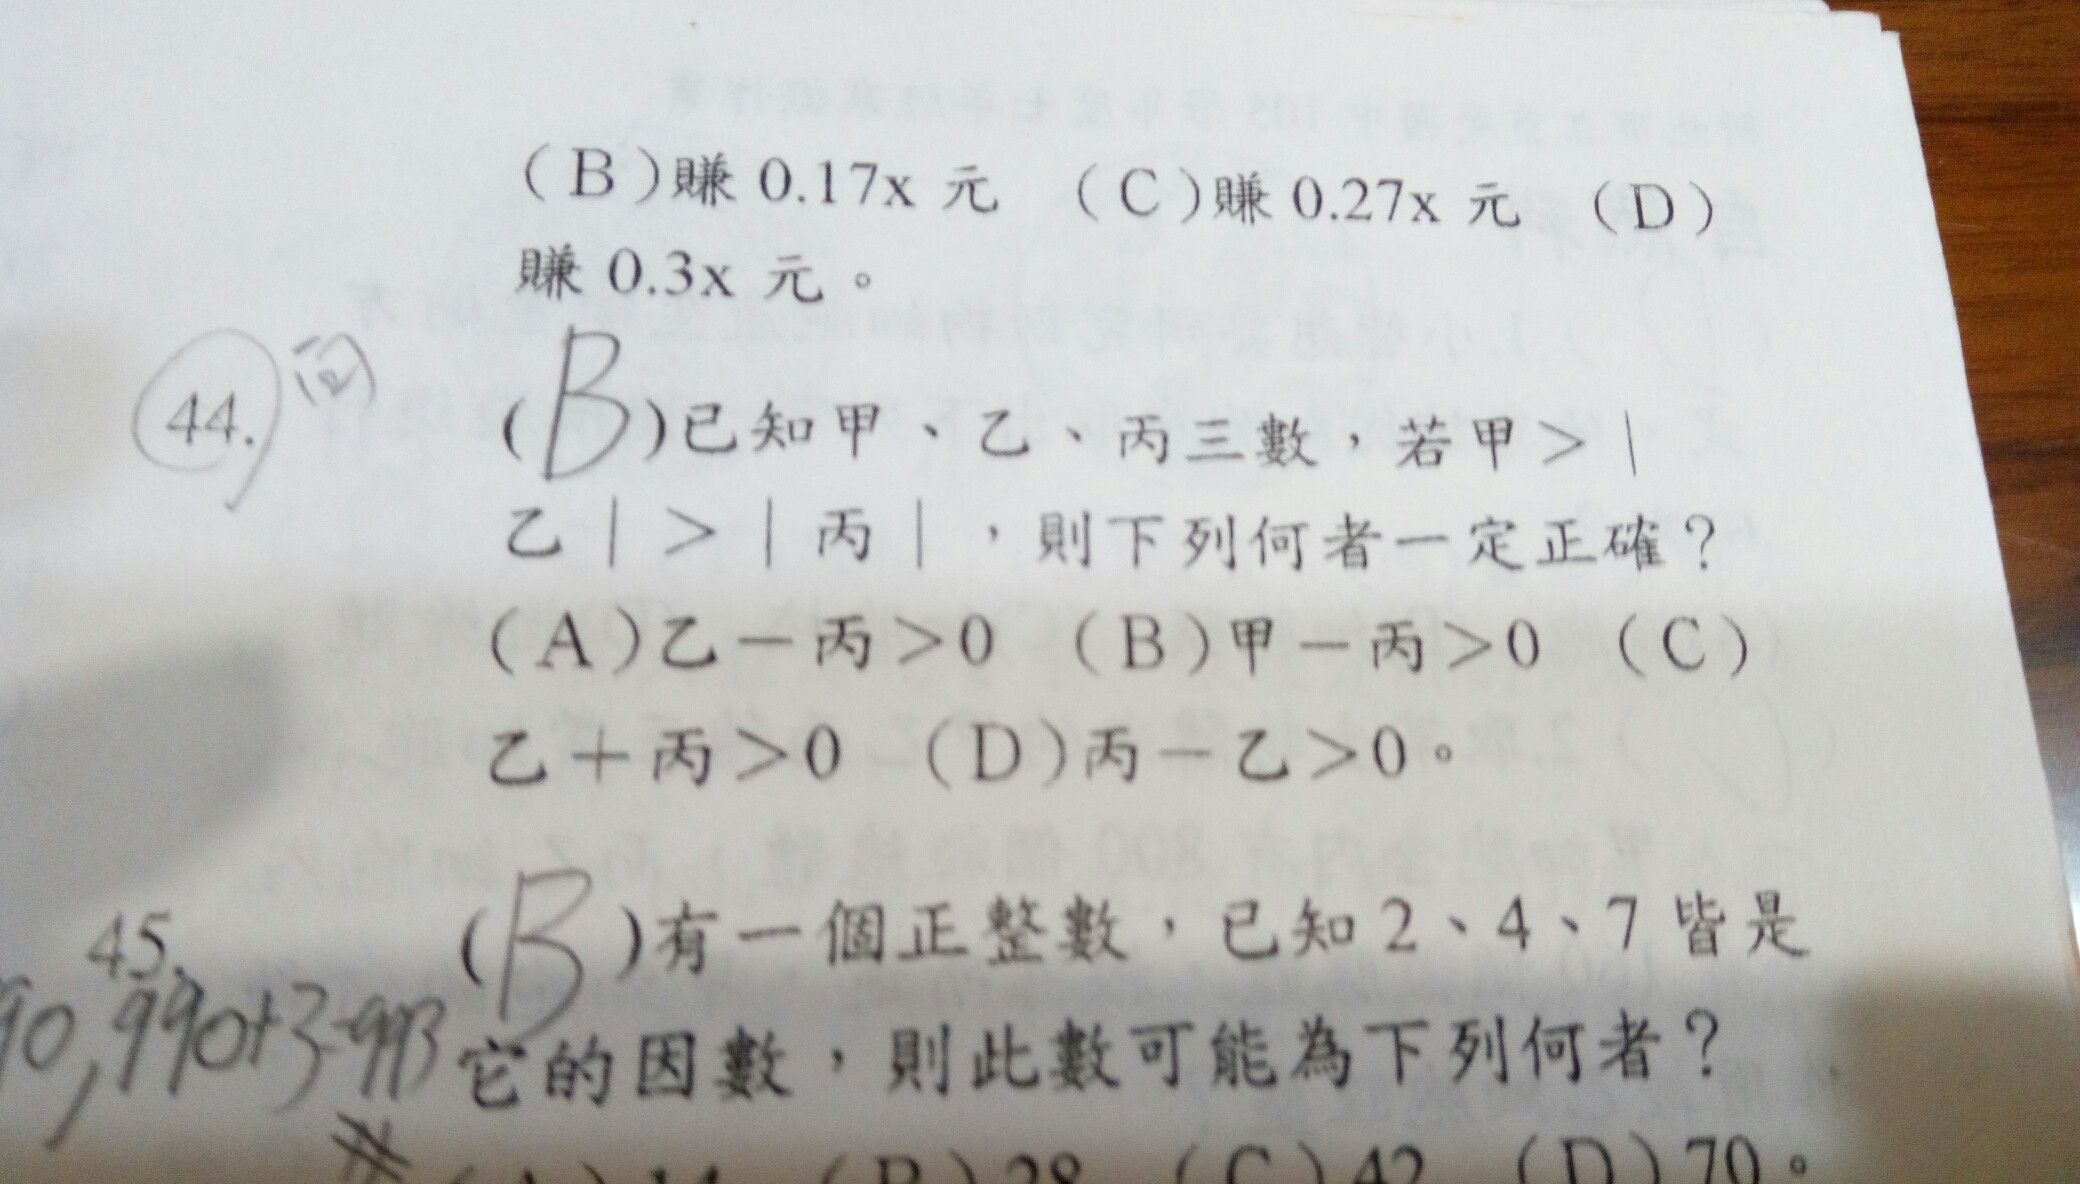 (B)賺 0.17x 元 (C)賺 0.27x 元 (D)
賺 0.3x 元。
44. 問 (B)已知甲、乙、丙三數,若甲>|
乙|>|丙|,則下列何者一定正確?
(A)乙-丙>0 (B)甲-丙>0 (C)
乙+丙>0 (D)丙-乙>0。
45. (B)有一個正整數,已知 2、4、7 皆是
90,990+3=993 它的因數,則此數可能為下列何者?
(A)14 (B)28 (C)42 (D)70。